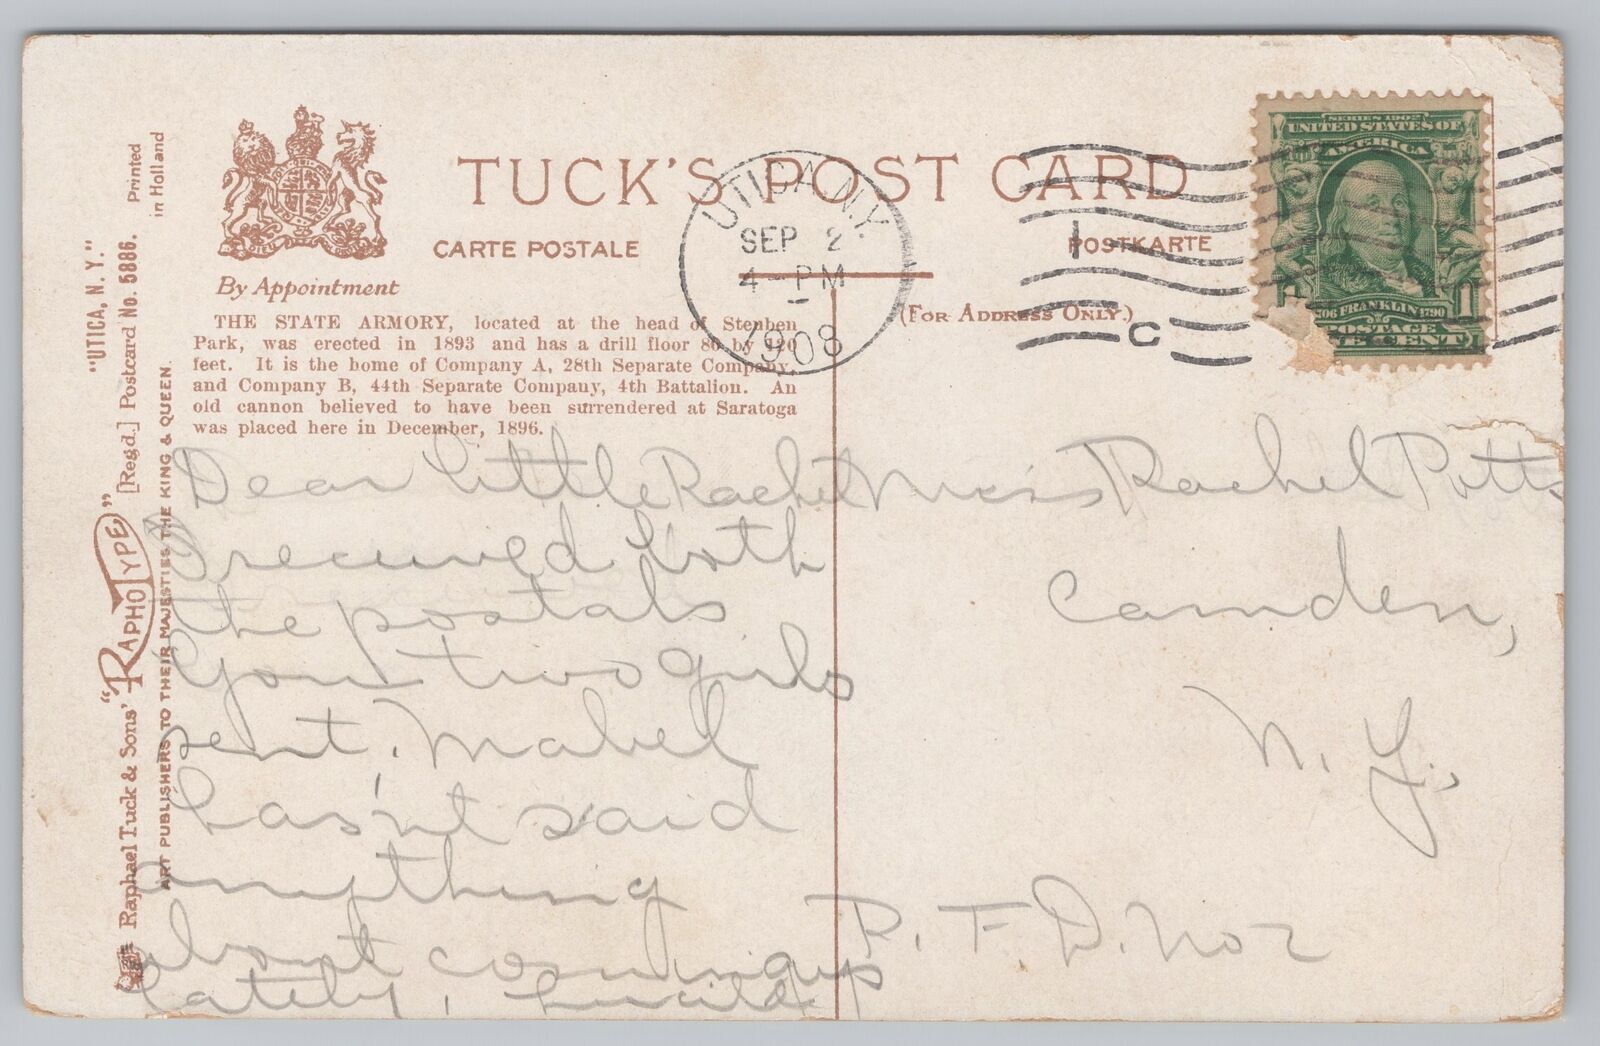 TUCK'S POST CARD
CARTE POSTALE
POSTKARTE
By Appointment
(FOR ADDRESS ONLY.)
THE STATE ARMORY, located at the head of Steuben
Park, was erected in 1893 and has a drill floor 80 by 120
feet. It is the home of Company A, 28th Separate Company,
and Company B, 44th Separate Company, 4th Battalion. An
old cannon believed to have been surrendered at Saratoga
was placed here in December, 1896.
UTICA N.Y.
SEP 2
4 - PM
1908
1
C
SERIES 1902
UNITED STATES OF
AMERICA
FRANKLIN 1790
POSTAGE
CENT
1
"UTICA, N. Y."
Printed
in Holland
Raphael Tuck & Sons' "RAPHOTYPE" [Regd.] Postcard No. 5886.
ART PUBLISHERS TO THEIR MAJESTIES THE KING & QUEEN.
Dear little Rachel
I received both
the postals
you two girls
sent. Mabel
hasn't said
anything
about coming up
lately.
Miss Rachel Potts
Camden,
N. Y.,
R. F. D. No 2